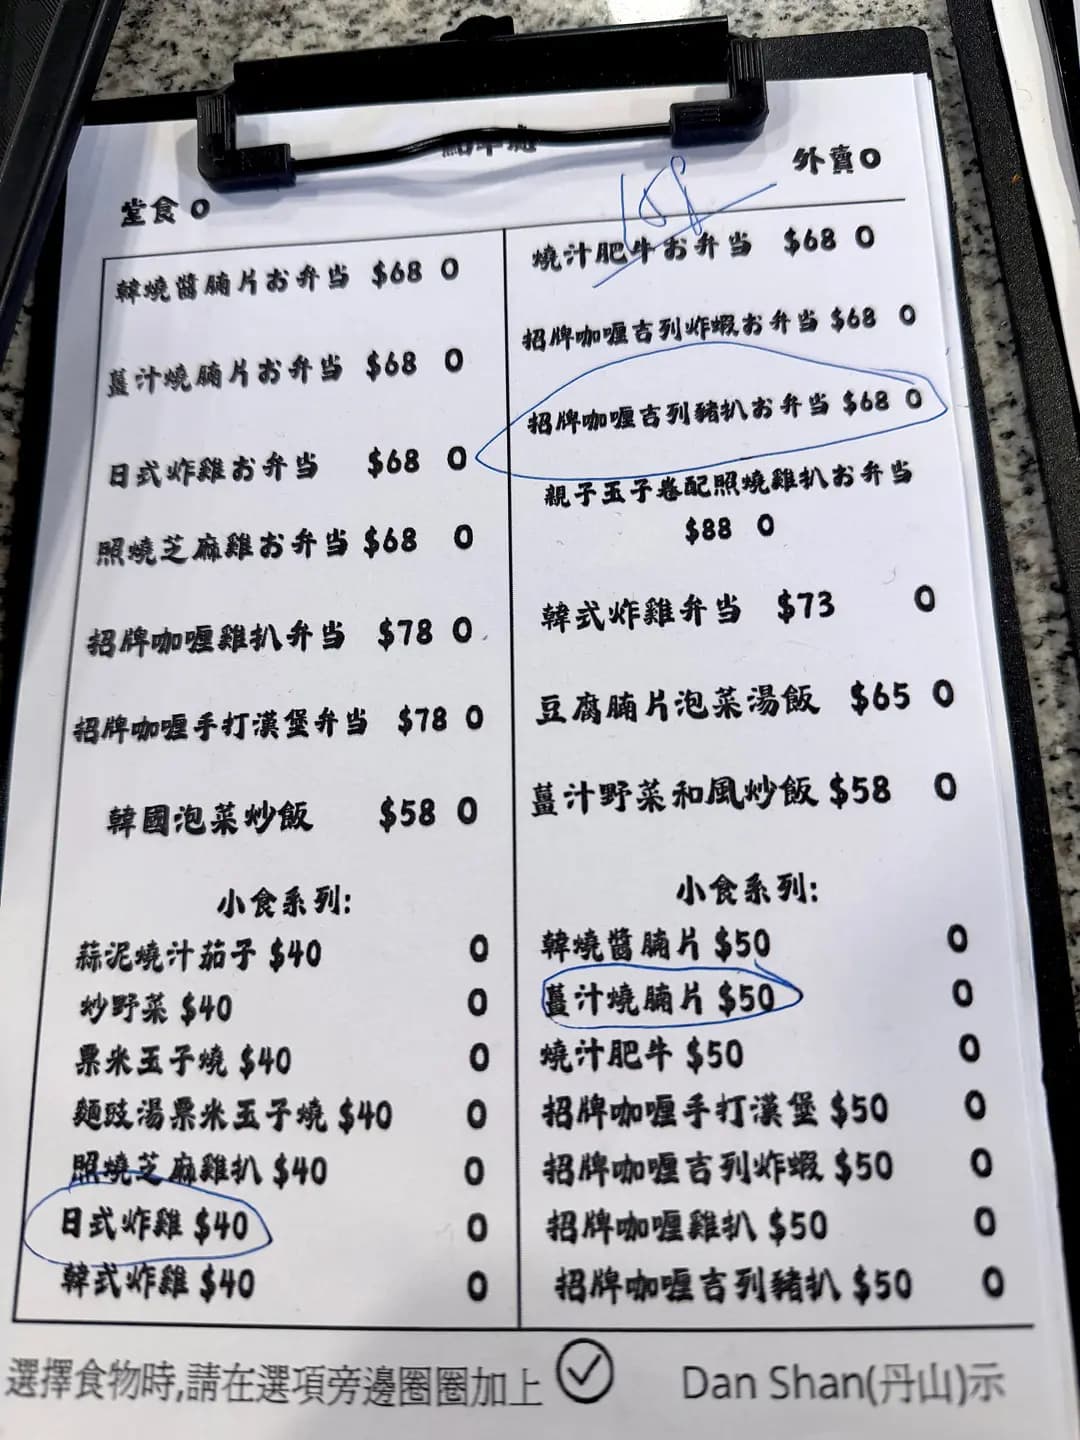 堂食 O
外賣 O
韓燒醬腩片お弁当 $68 O
薑汁燒腩片お弁当 $68 O
日式炸雞お弁当 $68 O
照燒芝麻雞お弁当 $68 O
招牌咖喱雞扒弁当 $78 O
招牌咖喱手打漢堡弁当 $78 O
韓國泡菜炒飯 $58 O
小食系列:
蒜泥燒汁茄子 $40 O
炒野菜 $40 O
粟米玉子燒 $40 O
麵豉湯粟米玉子燒 $40 O
照燒芝麻雞扒 $40 O
日式炸雞 $40 O
韓式炸雞 $40 O
燒汁肥牛お弁当 $68 O
招牌咖喱吉列炸蝦お弁当 $68 O
招牌咖喱吉列豬扒お弁当 $68 O
親子玉子卷配照燒雞扒お弁当
$88 O
韓式炸雞弁当 $73 O
豆腐腩片泡菜湯飯 $65 O
薑汁野菜和風炒飯 $58 O
小食系列:
韓燒醬腩片 $50 O
薑汁燒腩片 $50 O
燒汁肥牛 $50 O
招牌咖喱手打漢堡 $50 O
招牌咖喱吉列炸蝦 $50 O
招牌咖喱雞扒 $50 O
招牌咖喱吉列豬扒 $50 O
選擇食物時,請在選項旁邊圈圈加上
Dan Shan(丹山)示